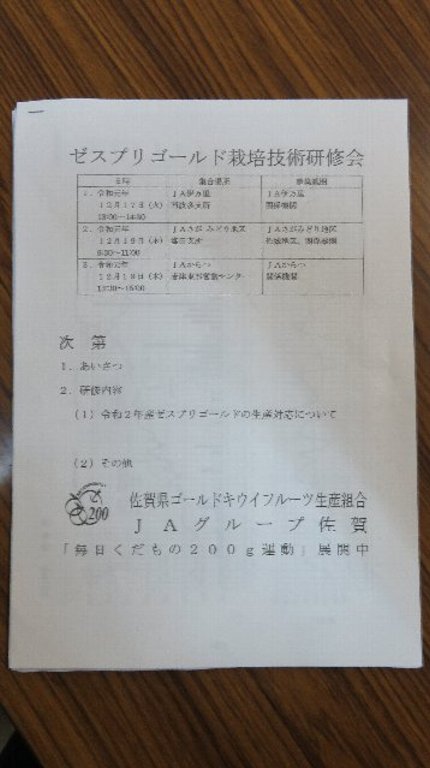 ゼスプリゴールド栽培技術研修会
日時 集合場所 参集範囲
1.令和元年 JA伊万里 JA伊万里
12月17日(火) 南波多支所 関係機関
13:00~14:30
2.令和元年 JAさがみどり地区 JAさがみどり地区
12月19日(木) 塩田支所 関係機関
9:30~11:00
3.令和元年 JAからつ JAからつ
12月19日(木) 関係機関
13:30~15:00
次 第
1.あいさつ
2.研修内容
(1)令和2年産ゼスプリゴールドの生産対応について
(2)その他
200
佐賀県ゴールドキウイフルーツ生産組合
JAグループ佐賀
「毎日くだもの200g運動」展開中